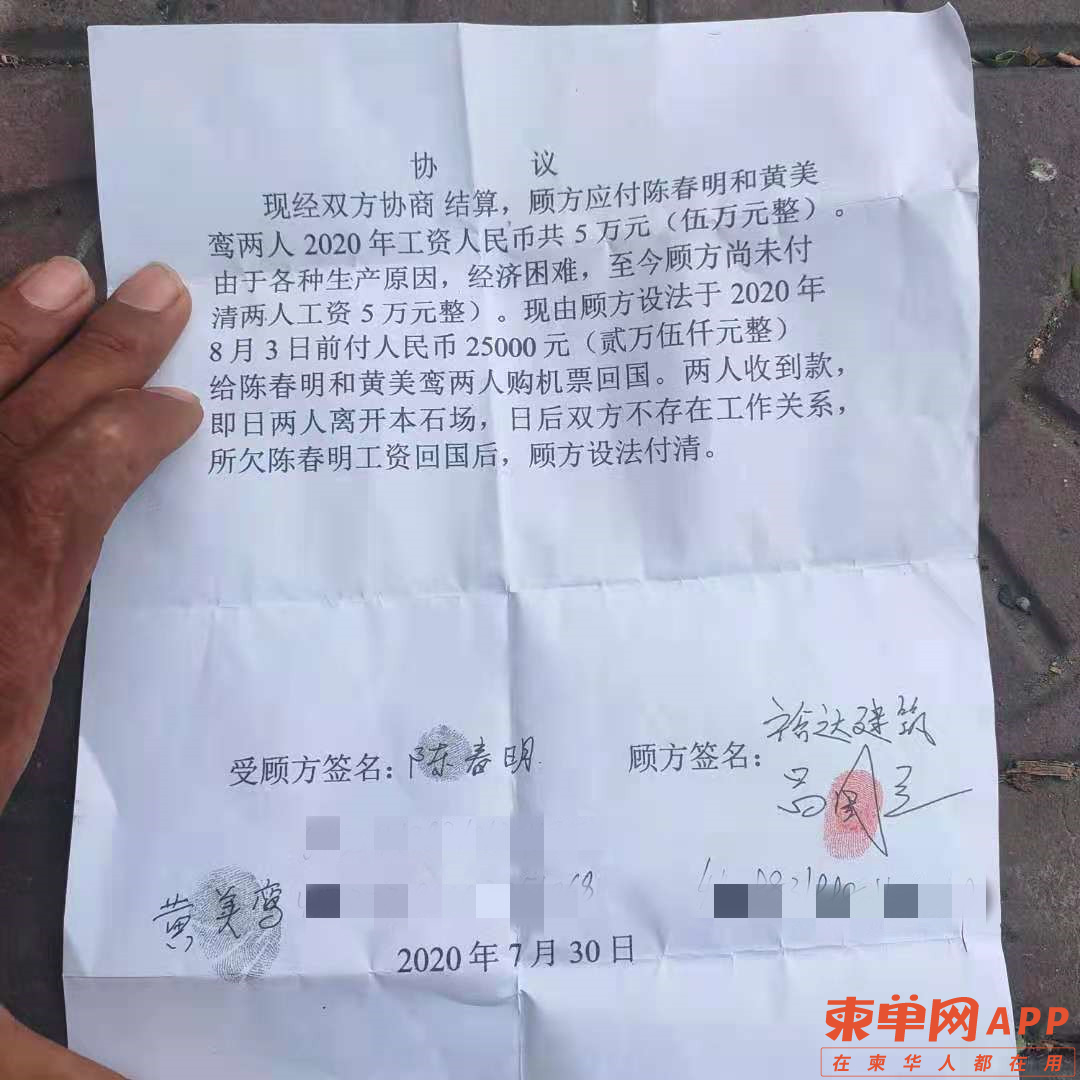 协 议
现经双方协商 结算，顾方应付陈春明和黄美
鸾两人 2020 年工资人民币共 5 万元（伍万元整）。
由于各种生产原因，经济困难，至今顾方尚未付
清两人工资 5 万元整）。现由顾方设法于 2020 年
8 月 3 日前付人民币 25000 元（贰万伍仟元整）
给陈春明和黄美鸾两人购机票回国。两人收到款，
即日两人离开本石场，日后双方不存在工作关系，
所欠陈春明工资回国后，顾方设法付清。
受顾方签名：陈春明
顾方签名：
达建筑
黄美鸾
2020 年 7 月 30 日
柬单网APP
在柬华人都在用